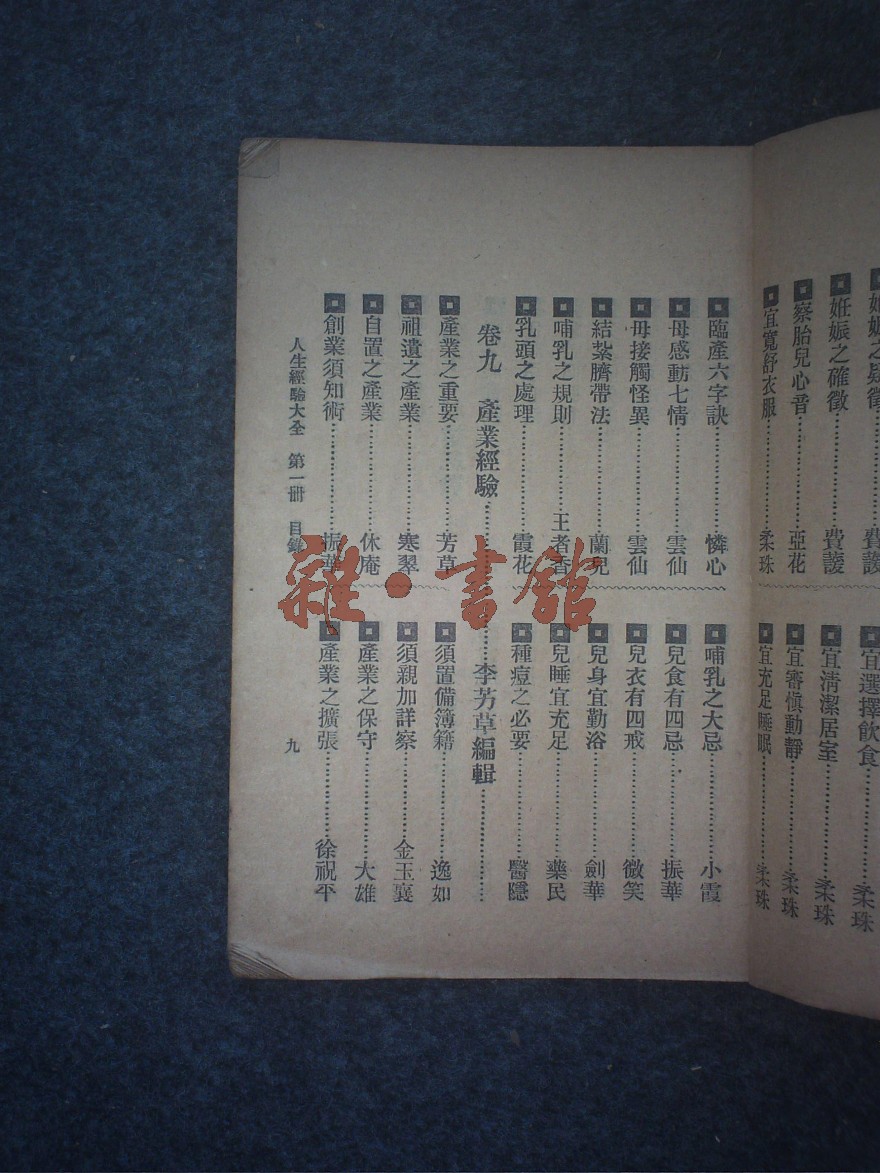 妊娠之疑徵……費護
妊娠之確徵……費護
察胎兒心音……亞花
宜寬舒衣服……柔珠
宜選擇飲食……柔珠
宜淸潔居室……柔珠
宜審愼動靜……柔珠
宜充足睡眠……柔珠
臨產六字訣……憐心
母感動七情……雲仙
毋接觸怪異……雲仙
結紮臍帶法……蘭兒
哺乳之規則……王者香
乳頭之處理……霞花
哺乳之大忌……小霞
兒食有四忌……振華
兒衣有四戒……微笑
兒身宜勤浴……劍華
兒睡宜充足……藥民
種痘之必要……醫隱
卷九 產業經驗……李芳草編輯……
產業之重要……芳草
祖遺之產業……寒翠
自置之產業……休庵
創業須知術……振華
須置備簿籍……逸如
須親加詳察……金玉襄
產業之保守……大雄
產業之擴張……徐祝平
人生經驗大全 第一册 目錄 九
雜·書館